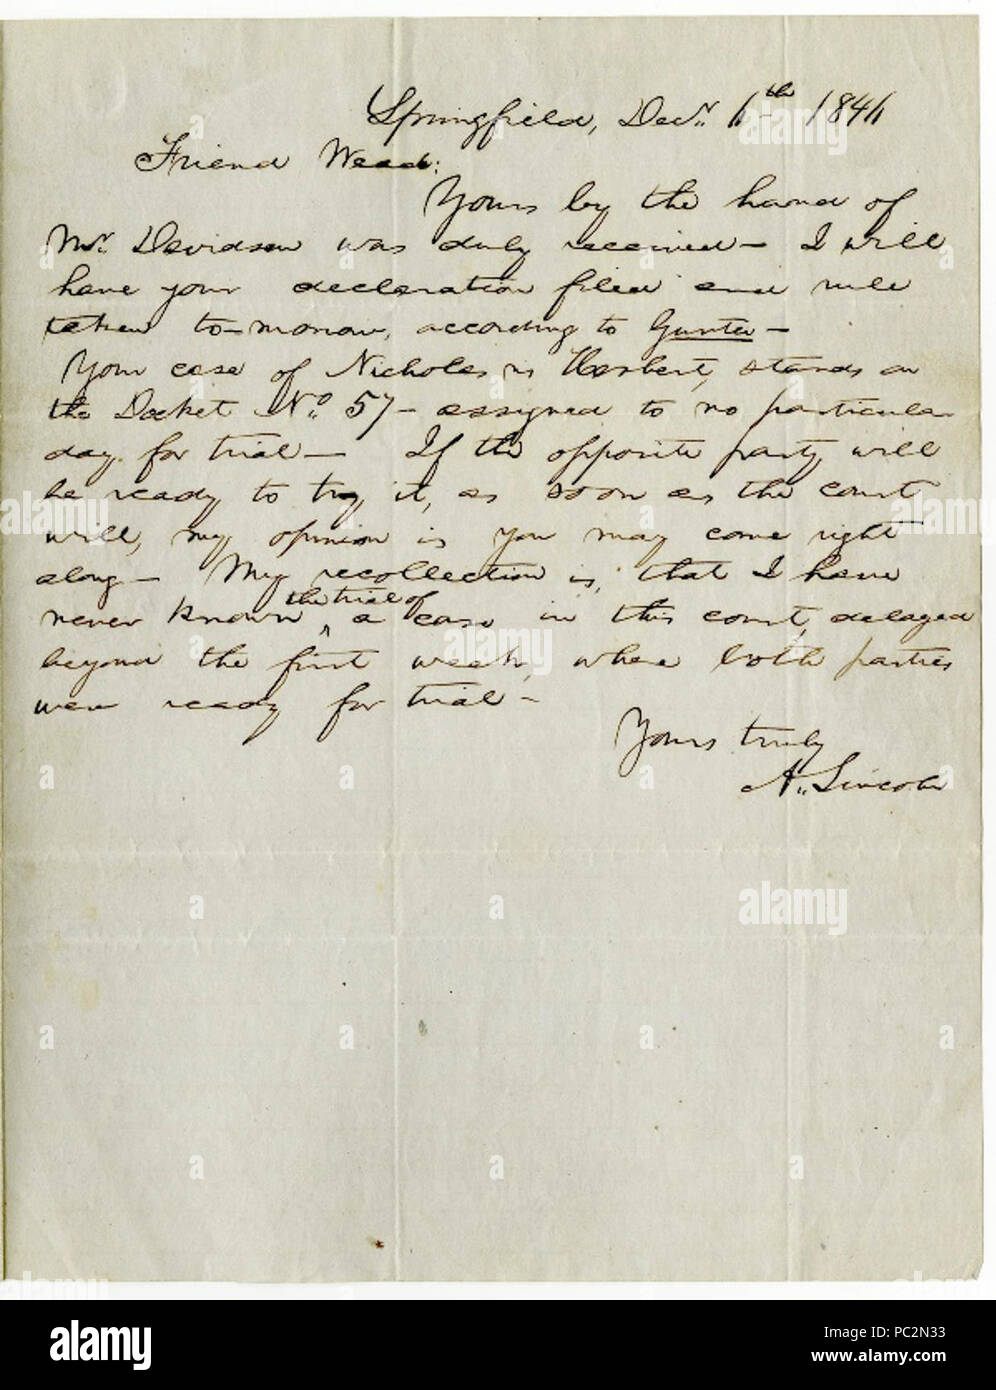 Springfield, Decr. 6th 1846
Friend Wead:
Yours by the hand of
Mr. Davidson was duly received— I will
have your declaration filed and rule
taken to-morrow, according to Gunter—
Your case of Nicholes vs Herbert, stands on
the Docket No. 57— assigned to no particular
day for trial— If the opposite party will
be ready to try it, as soon as the court
will, my opinion is you may come right
along— My recollection is, that I have
never known ^the trial of a case in this court, delayed
beyond the first week, where both parties
were ready for trial—
Yours truly
A. Lincoln
alamy
alamy
Image ID: PC2N33
www.alamy.com